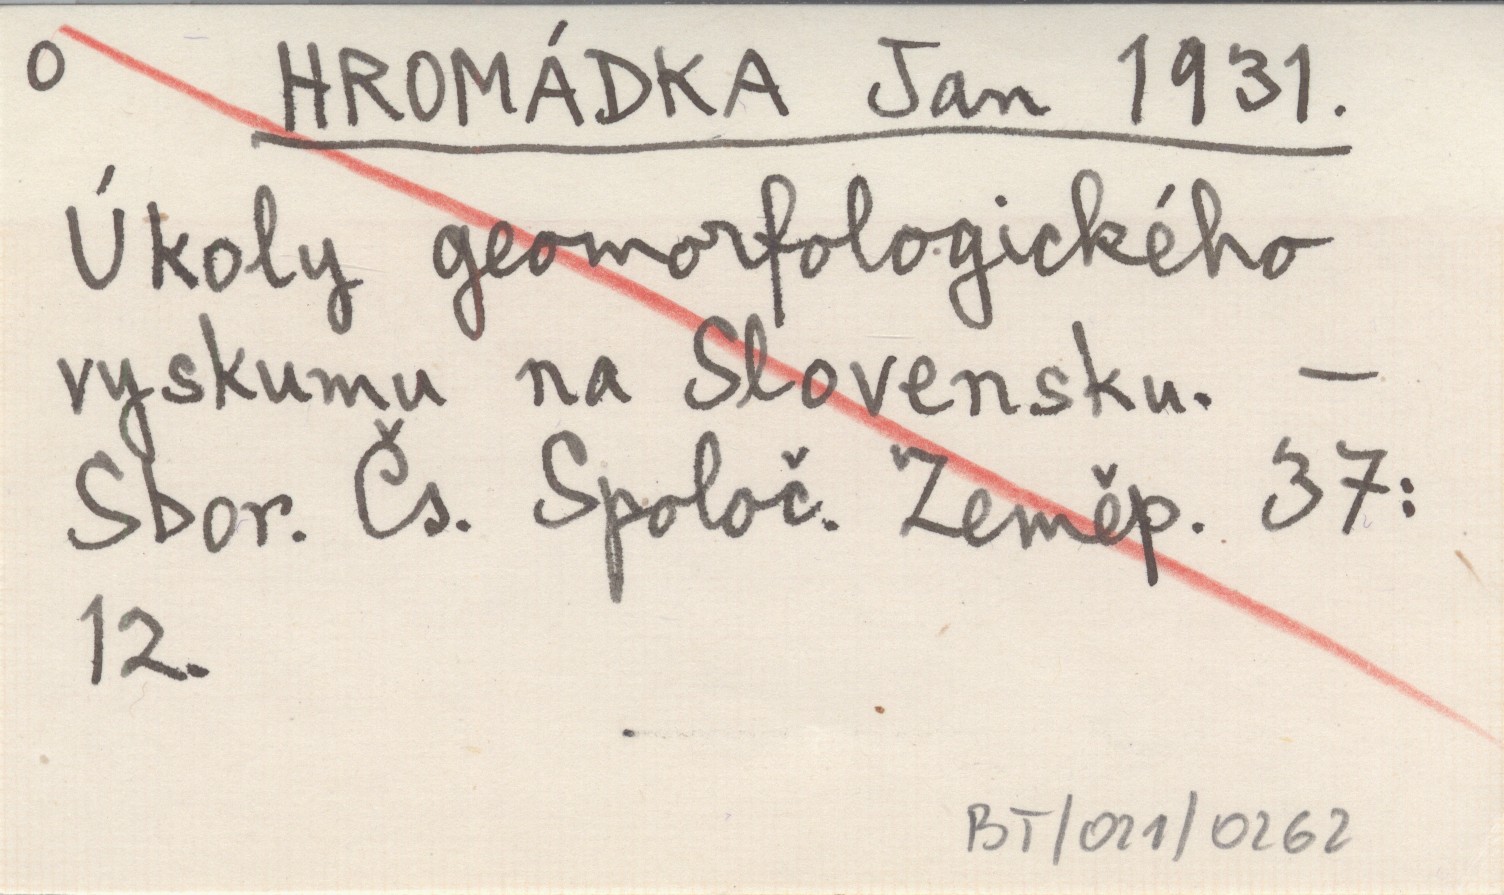 o HROMÁDKA Jan 1931.
Úkoly geomorfologického
vyskumu na Slovensku. —
Sbor. Čs. Spoloč. Zeměp. 37:
12.
BT/021/0262